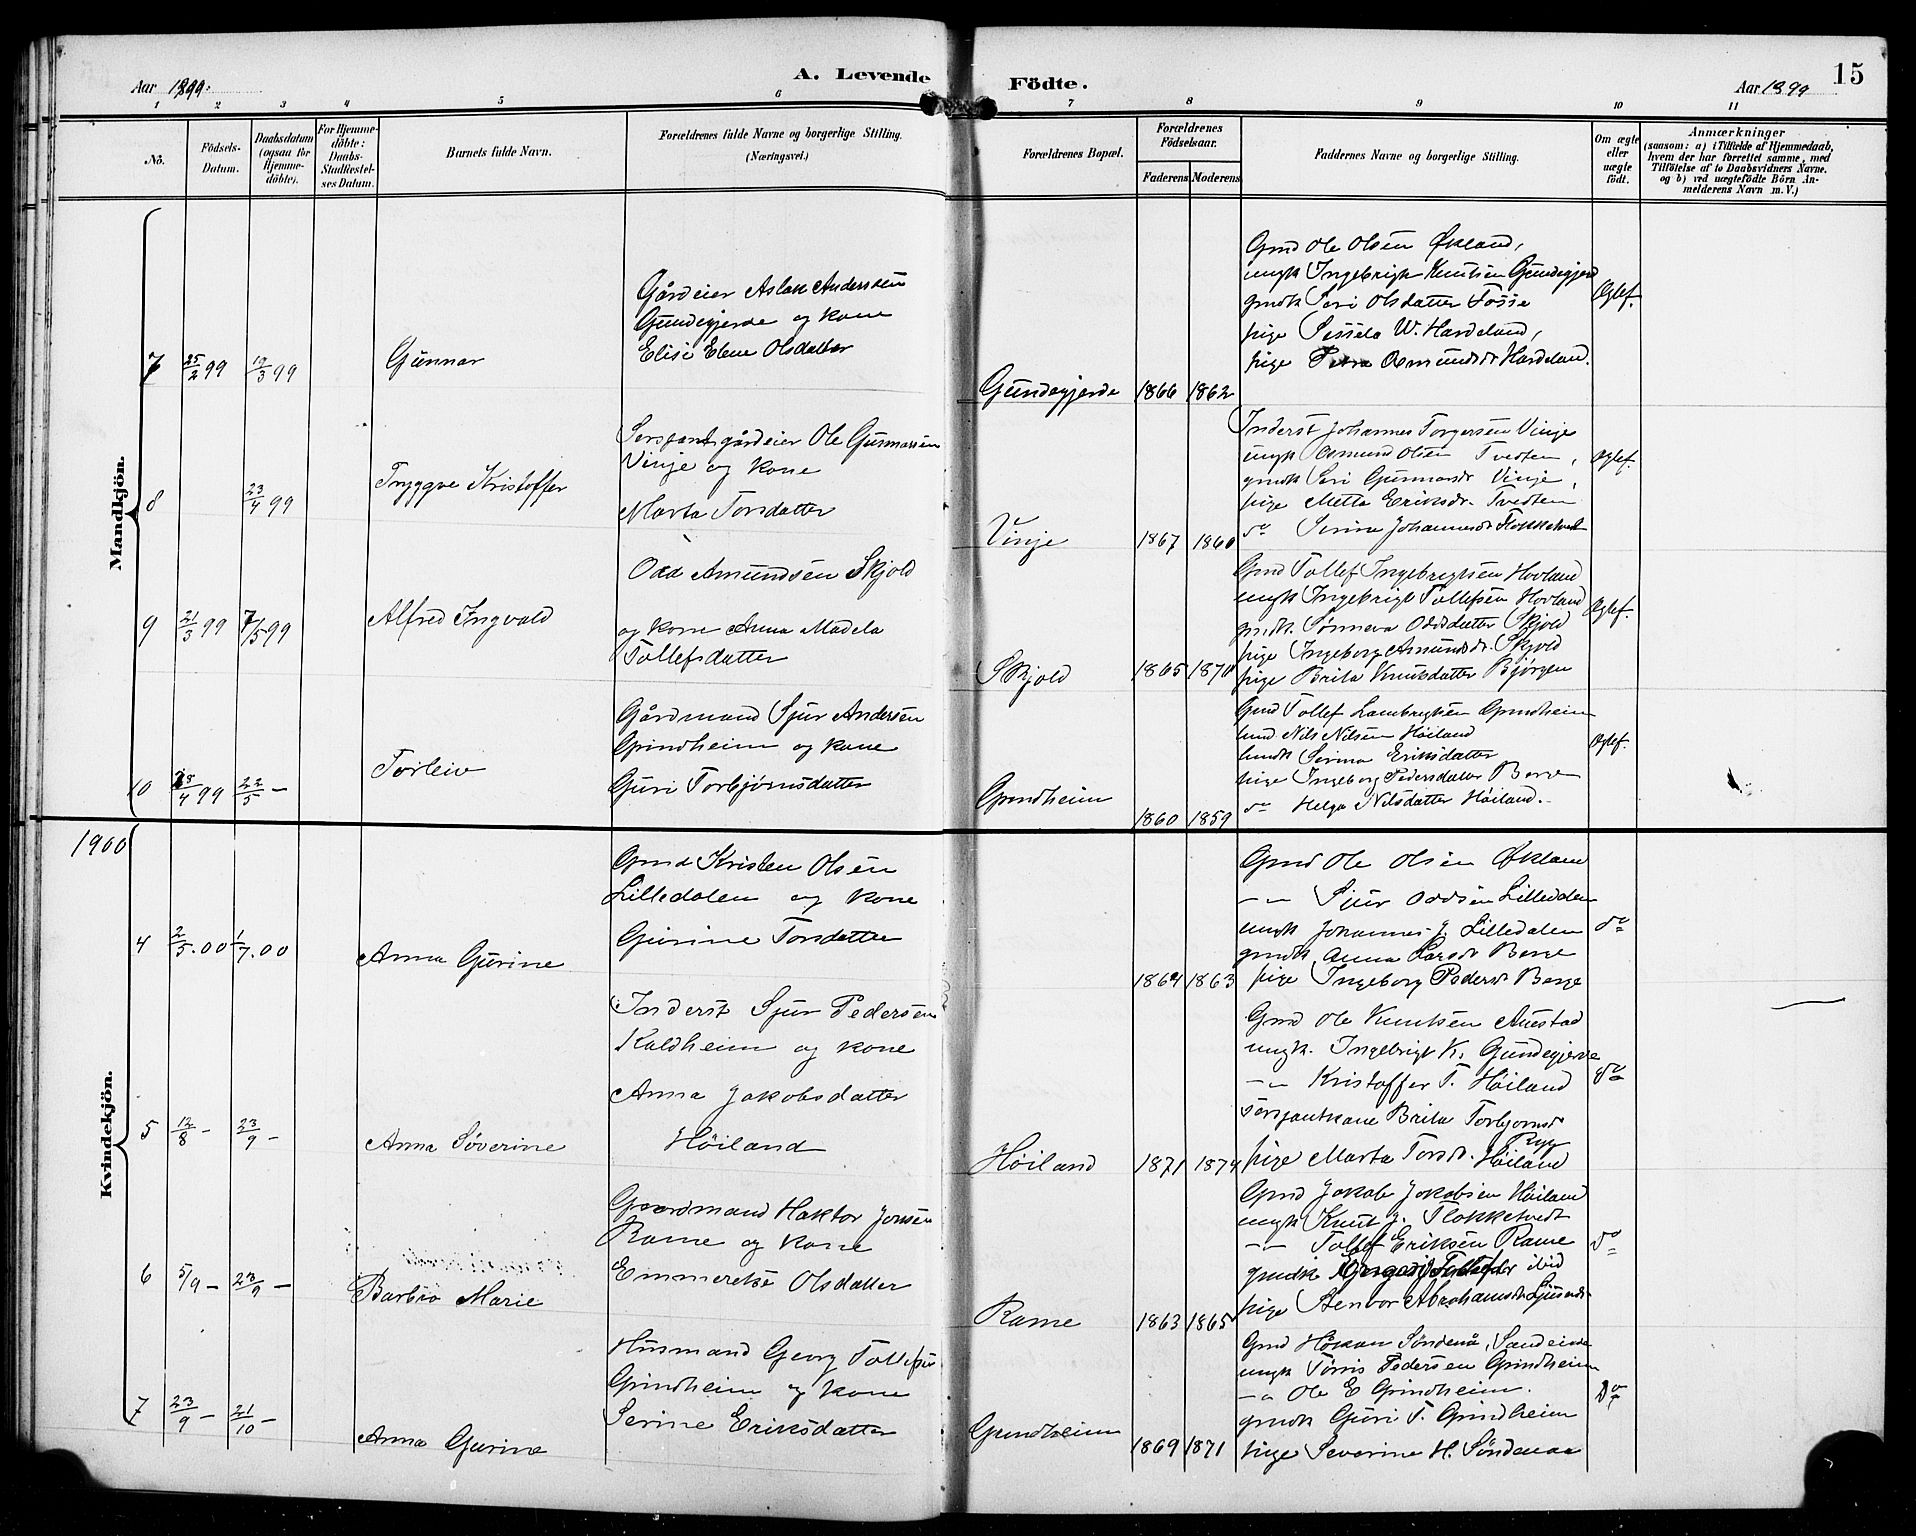 Aar 1899.
A. Levende
Födte.
Aar 1899
15
1 2 3 4 5 6 7 8 9 10 11
No.
Födsels-
Datum.
Daabsdatum
(ogsaa for
Hjemme-
döbte).
For Hjemme-
döbte:
Daabs-
Stadfæstel-
ses Datum.
Barnets fulde Navn.
Forældrenes fulde Navne og borgerlige Stilling.
(Næringsvei.)
Forældrenes Bopæl.
Forældrenes
Födselsaar.
Faderens Moderens
Faddernes Navne og borgerlige Stilling.
Om ægte
eller
uægte
födt.
Anmærkninger
(saasom: a) i Tilfælde af Hjemmedaab,
hvem der har forrettet samme, med
Tilföielse af to Daabsvidners Navne.
og b) ved uægtefödte Börn An-
melderens Navn m. V.)
Mandkjön.
7 25/2 99 19/3 99
Gunnar
Gårdeier Aslak Anderssen
Gundegjerde og kone
Elise Elene Olsdatter
Gundegjerde 1866 1862
Gmd Ole Olsen Økland,
ungk Ingebrigt Knutsen Gundegjerd
gmdk Siri Olsdatter Fosse
pige Sessela W. Hardeland,
pige Petra Osmundsdt Hardeland.
Ægtef.
8 23/4 99
Tryggve Kristoffer
Sersjant gårdeier Ole Gunnarsen
Vinje og kone
Marta Torsdatter
Vinje 1867 1860
Inderst Johannes Torgersen Vinje
ungk Osmund Olsen Tvedten,
gmdk Siri Gunnarsdr Vinje,
pige Metta Eriksdr. Tvedten
do Serine Johannesdt Flokketvedt
Ægtef.
9 21/3 99 7/5 99
Alfred Ingvald
Odd Amundsen Skjold
og kone Anna Madela
Tollefsdatter
Skjold 1865 1870
Gmd Tollef Ingebrigtsen Hovland
ungk Ingebrigt Tollefsen Hovland
gmdk. Sønneva Oddsdatter Skjold
pige Ingeborg Amundsdr. Skjold
pige Brita Knutsdatter Bjørgen
Ægtef.
10 /4 99 22/5 —
Torleiv
Gårdmand Sjur Andersen
Grindheim og kone
Guri Torbjørnsdatter
Grindheim 1860 1859
Gmd Tollef Lambregtsen Grindheim
Nils Nilsen Høiland
Serina Eriksdatter
pige Ingeborg Pedersdatter Berge
do Helga Nilsdatter Høiland.
Ægtef.
1900
Kvindekjön.
4 2/5.00 1/7.00
Anna Gurine
Gmd Kristen Olsen
Lilledalen og kone
Gurine Torsdatter
1864 1863
Gmd Ole Olsen Økland
—"— Sjur Oddsen Lilledalen
ungk Johannes J. Lilledalen
gmdk Anna Larsdt Berge
pige Ingeborg Pedersdt Berge
do
5 12/8 — 23/9 —
Anna Søverine
Inderst Sjur Pedersen
Kaldheim og kone
Anna Jakobsdatter
Høiland
Høiland 1871 1874
Gmd Ole Knutsen Auestad
ungk. Ingebrigt K. Gundegjerde
—"— Kristoffer T. Høiland
Sersjantkone Brita Torbjørnsd
Ryg
pige Marta Torsdt. Høiland
do
6 5/9 — 23/9 —
Barbro Marie
Gaardmand Haktor Jonsen
Rame og kone
Emmereke Olsdatter
Rame 1863 1865
Gmd Jakob Jakobsen Høiland
ungk Knut J. Flokketvedt
—"— Tollef Eriksen Rame
gmdk ibid
pige Stenvor Abrahamsdt
do
7 23/9 — 21/10 —
Anna Gurine
Husmand Georg Tollefsen
Grindheim og kone
Serine Eriksdatter
Grindheim 1869 1871
Gmd Håkon Søndenå, Sandeide
ungk Tørris Pedersen Grindheim
—"— Ole E Grindheim.
gmdk Guri T. Grindheim
pige Severine H. Søndenaa
Do